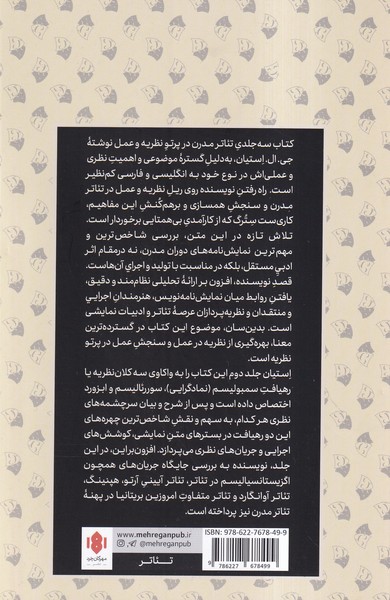 کتاب سه‌جلدیِ تئاتر مدرن در پرتو نظریه و عمل نوشتهٔ
جی. ال. اِستیان، به‌دلیلِ گسترهٔ موضوعی و اهمیتِ نظری
و عملی‌اش در نوع خود به انگلیسی و فارسی کم‌نظیر
است. راه رفتنِ نویسنده روی ریل نظریه و عمل در تئاتر
مدرن و سنجشِ همسازی و برهم‌کُنشِ این مفاهیم،
کاری‌ست سِتُرگ که از کارآمدیِ بی‌همتایی برخوردار است.
تلاش تازه در این متن، بررسی شاخص‌ترین و
مهم‌ترین نمایش‌نامه‌های دوران مدرن، نه درمقام اثر
ادبیِ مستقل، بلکه در مناسبت با تولید و اجرایِ آن‌هاست.
قصدِ نویسنده، افزون بر ارائهٔ تحلیلی نظام‌مند و دقیق،
یافتنِ روابط میان نمایش‌نامه‌نویس، هنرمندانِ اجرایی
و منتقدان و نظریه‌پردازان عرصهٔ تئاتر و ادبیات نمایشی
است. بدین‌سان، موضوع این کتاب در گسترده‌ترین
معنا، بهره‌گیری از نظریه در عمل و سنجشِ عمل در پرتو
نظریه است.
اِستیان جلد دوم این کتاب را به واکاوی سه کلان‌نظریه یا
رهیافتِ سمبولیسم (نمادگرایی)، سوررئالیسم و ابزورد
اختصاص داده است و پس از شرح و بیان سرچشمه‌های
نظری هر کدام، به سهم و نقشِ شاخص‌ترین چهره‌های
این دو رهیافت در بسترهای متنِ نمایشی، کوشش‌های
اجرایی و جریان‌های نظری می‌پردازد. افزون‌براین، در این
جلد، نویسنده به بررسی جایگاه جریان‌های همچون
اگزیستانسیالیسم در تئاتر، تئاتر آیینیِ آرتو، هپنینگ،
تئاتر آوانگارد و تئاتر متفاوتِ امروزین بریتانیا در پهنهٔ
تئاتر مدرن نیز پرداخته است.
www.mehreganpub.ir
@mehreganpub
تئاتر
ISBN 978-622-7678-49-9
9 786227 678499